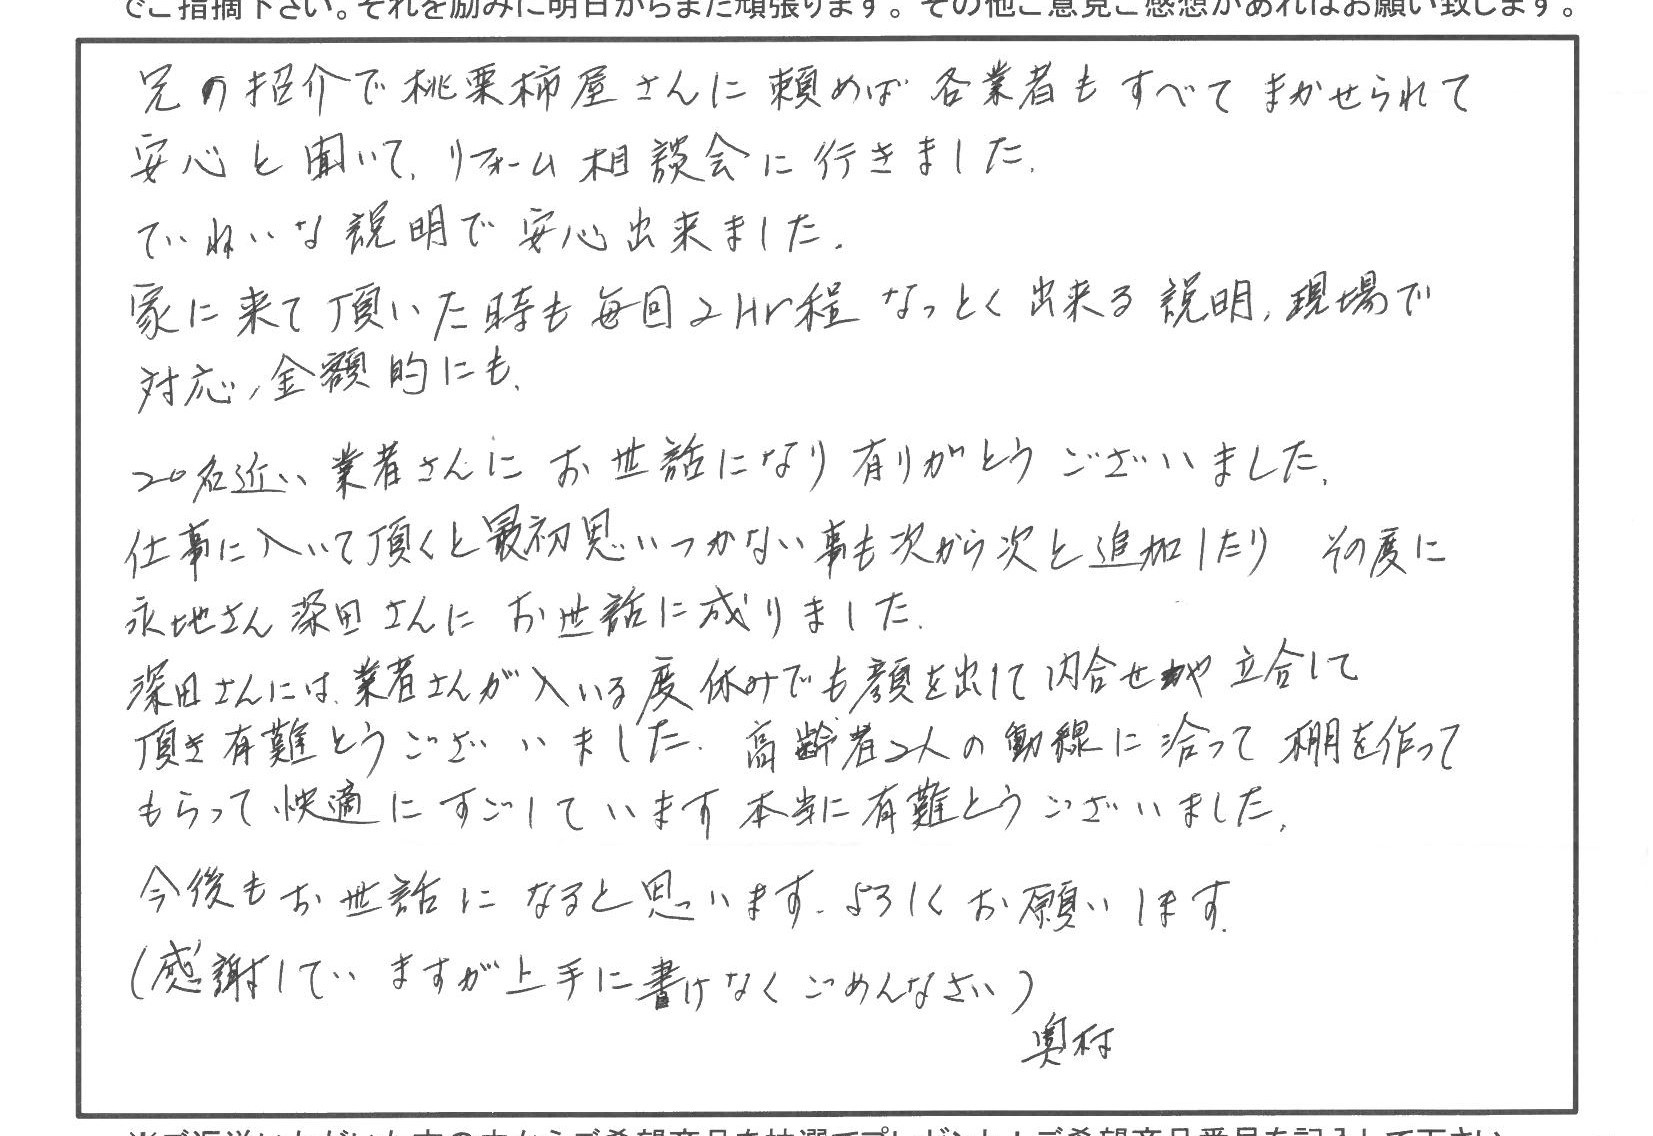 でご指摘下さい。それを励みに明日からまた頑張ります。その他ご意見ご感想があればお願い致します。
兄の紹介で桃栗柿屋さんに頼めば各業者もすべてまかせられて
安心と聞いて、リフォーム相談会に行きました。
ていねいな説明で安心出来ました。
家に来て頂いた時も毎回2Hr程なっとく出来る説明、現場で
対応、金額的にも、
20名近い業者さんにお世話になり有りがとうございました。
仕事に入いて頂くと最初思いつかない事も次から次と追加したりその度に
永地さん深田さんにお世話に成りました。
深田さんには、業者さんが入いる度休みでも顔を出して内合せや立合して
頂き有難とうございました。高齢者2人の動線に沿って棚を作って
もらって快適にすごしています本当に有難とうございました。
今後もお世話になると思います。よろしくお願いします。
(感謝していますが上手に書けなくごめんなさい)
奥村
※ご返送いただいた方の中からご希望商品を抽選でプレゼント!ご希望商品番号を記入して下さい